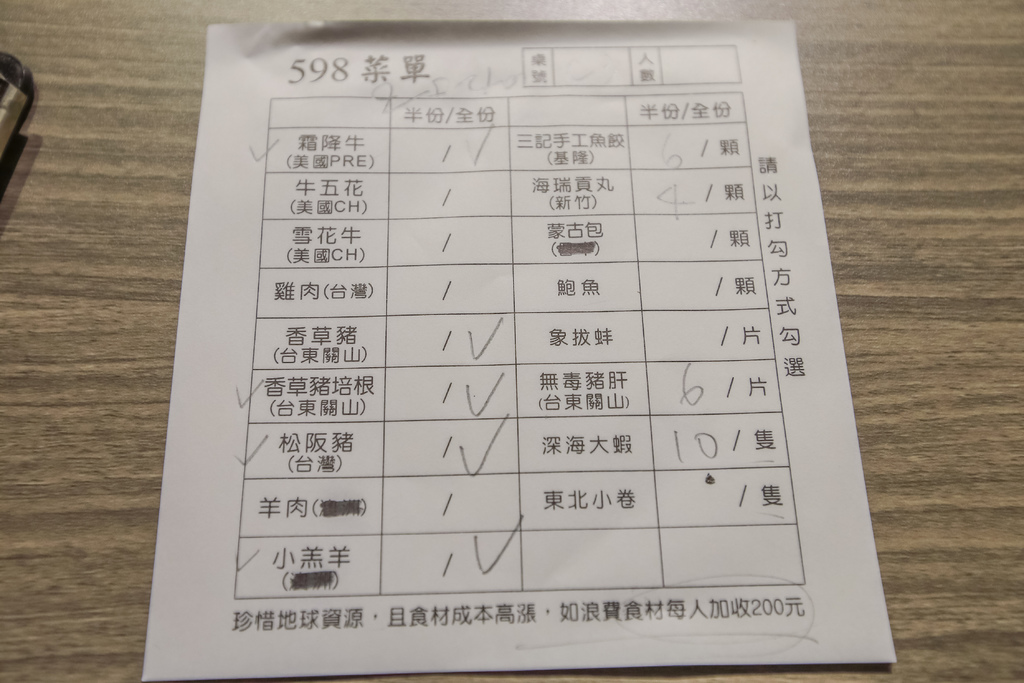 598 菜單 桌號 人數
半份/全份 半份/全份
霜降牛 / ✓ 三記手工魚餃 6 / 顆
(美國PRE) (基隆)
牛五花 / 海瑞貢丸 4 / 顆
(美國CH) (新竹)
雪花牛 / 蒙古包 / 顆
(美國CH)
雞肉(台灣) / 鮑魚 / 顆
香草豬 / ✓ 象拔蚌 / 片
(台東關山)
香草豬培根 / ✓ 無毒豬肝 6 / 片
(台東關山) (台東關山)
松阪豬 / ✓ 深海大蝦 10 / 隻
(台灣)
羊肉 / 東北小卷 / 隻
小羔羊 / ✓
請以打勾方式勾選
珍惜地球資源，且食材成本高漲，如浪費食材每人加收200元